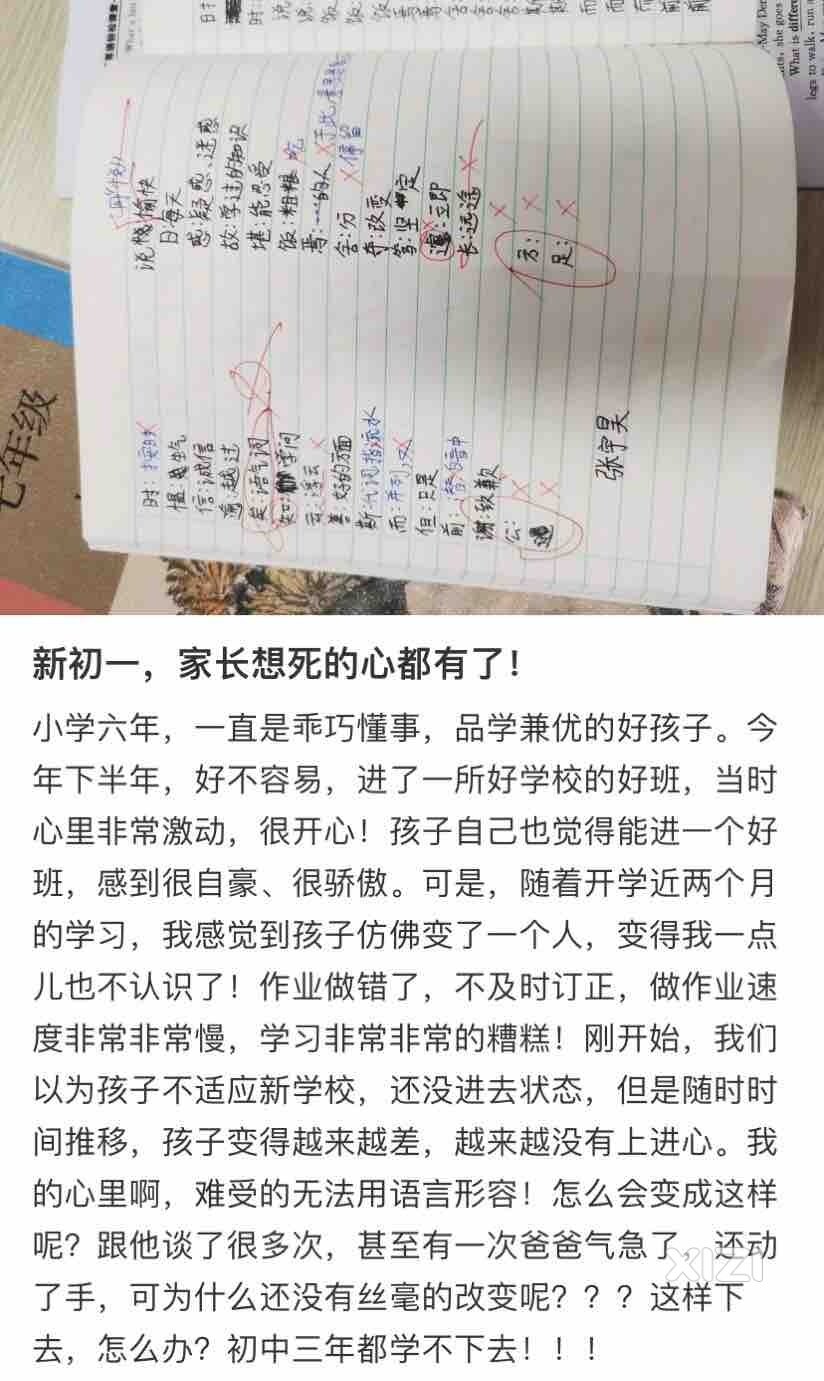 七年级
说愉快
日:每天
惑:疑惑、迷惑
故:学过的知识
堪:能忍受
饭:粗粮 吃
焉:……的人
舍:分 停留
夺:改变
笃:坚定
遽:立即
长:远途
方:
足:
时:按时
愠:生气
信:诚信
逾:越过
矣:语气词
知:学问
云:浮云
善:好的方面
斯:代词指流水
而:并列
但:只是
前:暗中
谢:致歉
公:
张宇昊
新初一，家长想死的心都有了！
小学六年，一直是乖巧懂事，品学兼优的好孩子。今
年下半年，好不容易，进了一所好学校的好班，当时
心里非常激动，很开心！孩子自己也觉得能进一个好
班，感到很自豪、很骄傲。可是，随着开学近两个月
的学习，我感觉到孩子仿佛变了一个人，变得我一点
儿也不认识了！作业做错了，不及时订正，做作业速
度非常非常慢，学习非常非常的糟糕！刚开始，我们
以为孩子不适应新学校，还没进去状态，但是随时时
间推移，孩子变得越来越差，越来越没有上进心。我
的心里啊，难受的无法用语言形容！怎么会变成这样
呢？跟他谈了很多次，甚至有一次爸爸气急了，还动
了手，可为什么还没有丝毫的改变呢？？？这样下
去，怎么办？初中三年都学不下去！！！
XIZI